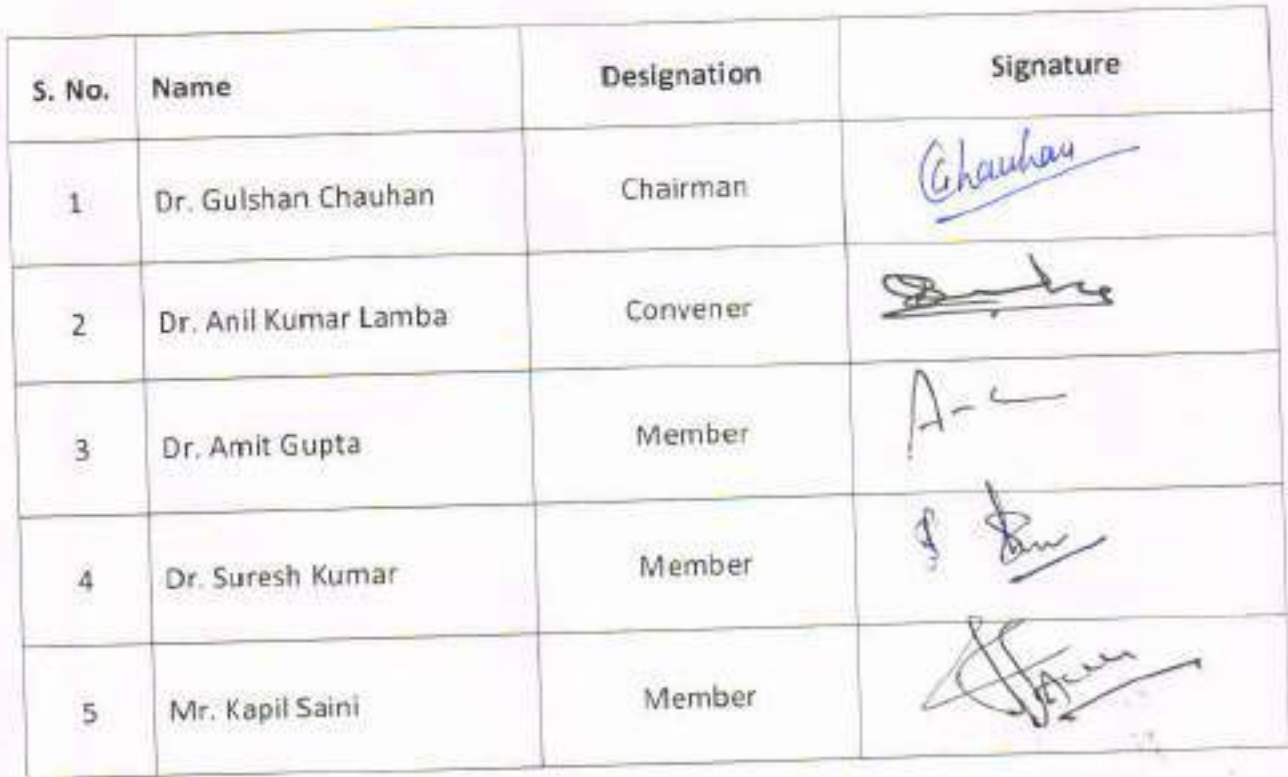 S. No. Name Designation Signature
1 Dr. Gulshan Chauhan Chairman Chauhan
2 Dr. Anil Kumar Lamba Convener
3 Dr. Amit Gupta Member
4 Dr. Suresh Kumar Member
5 Mr. Kapil Saini Member